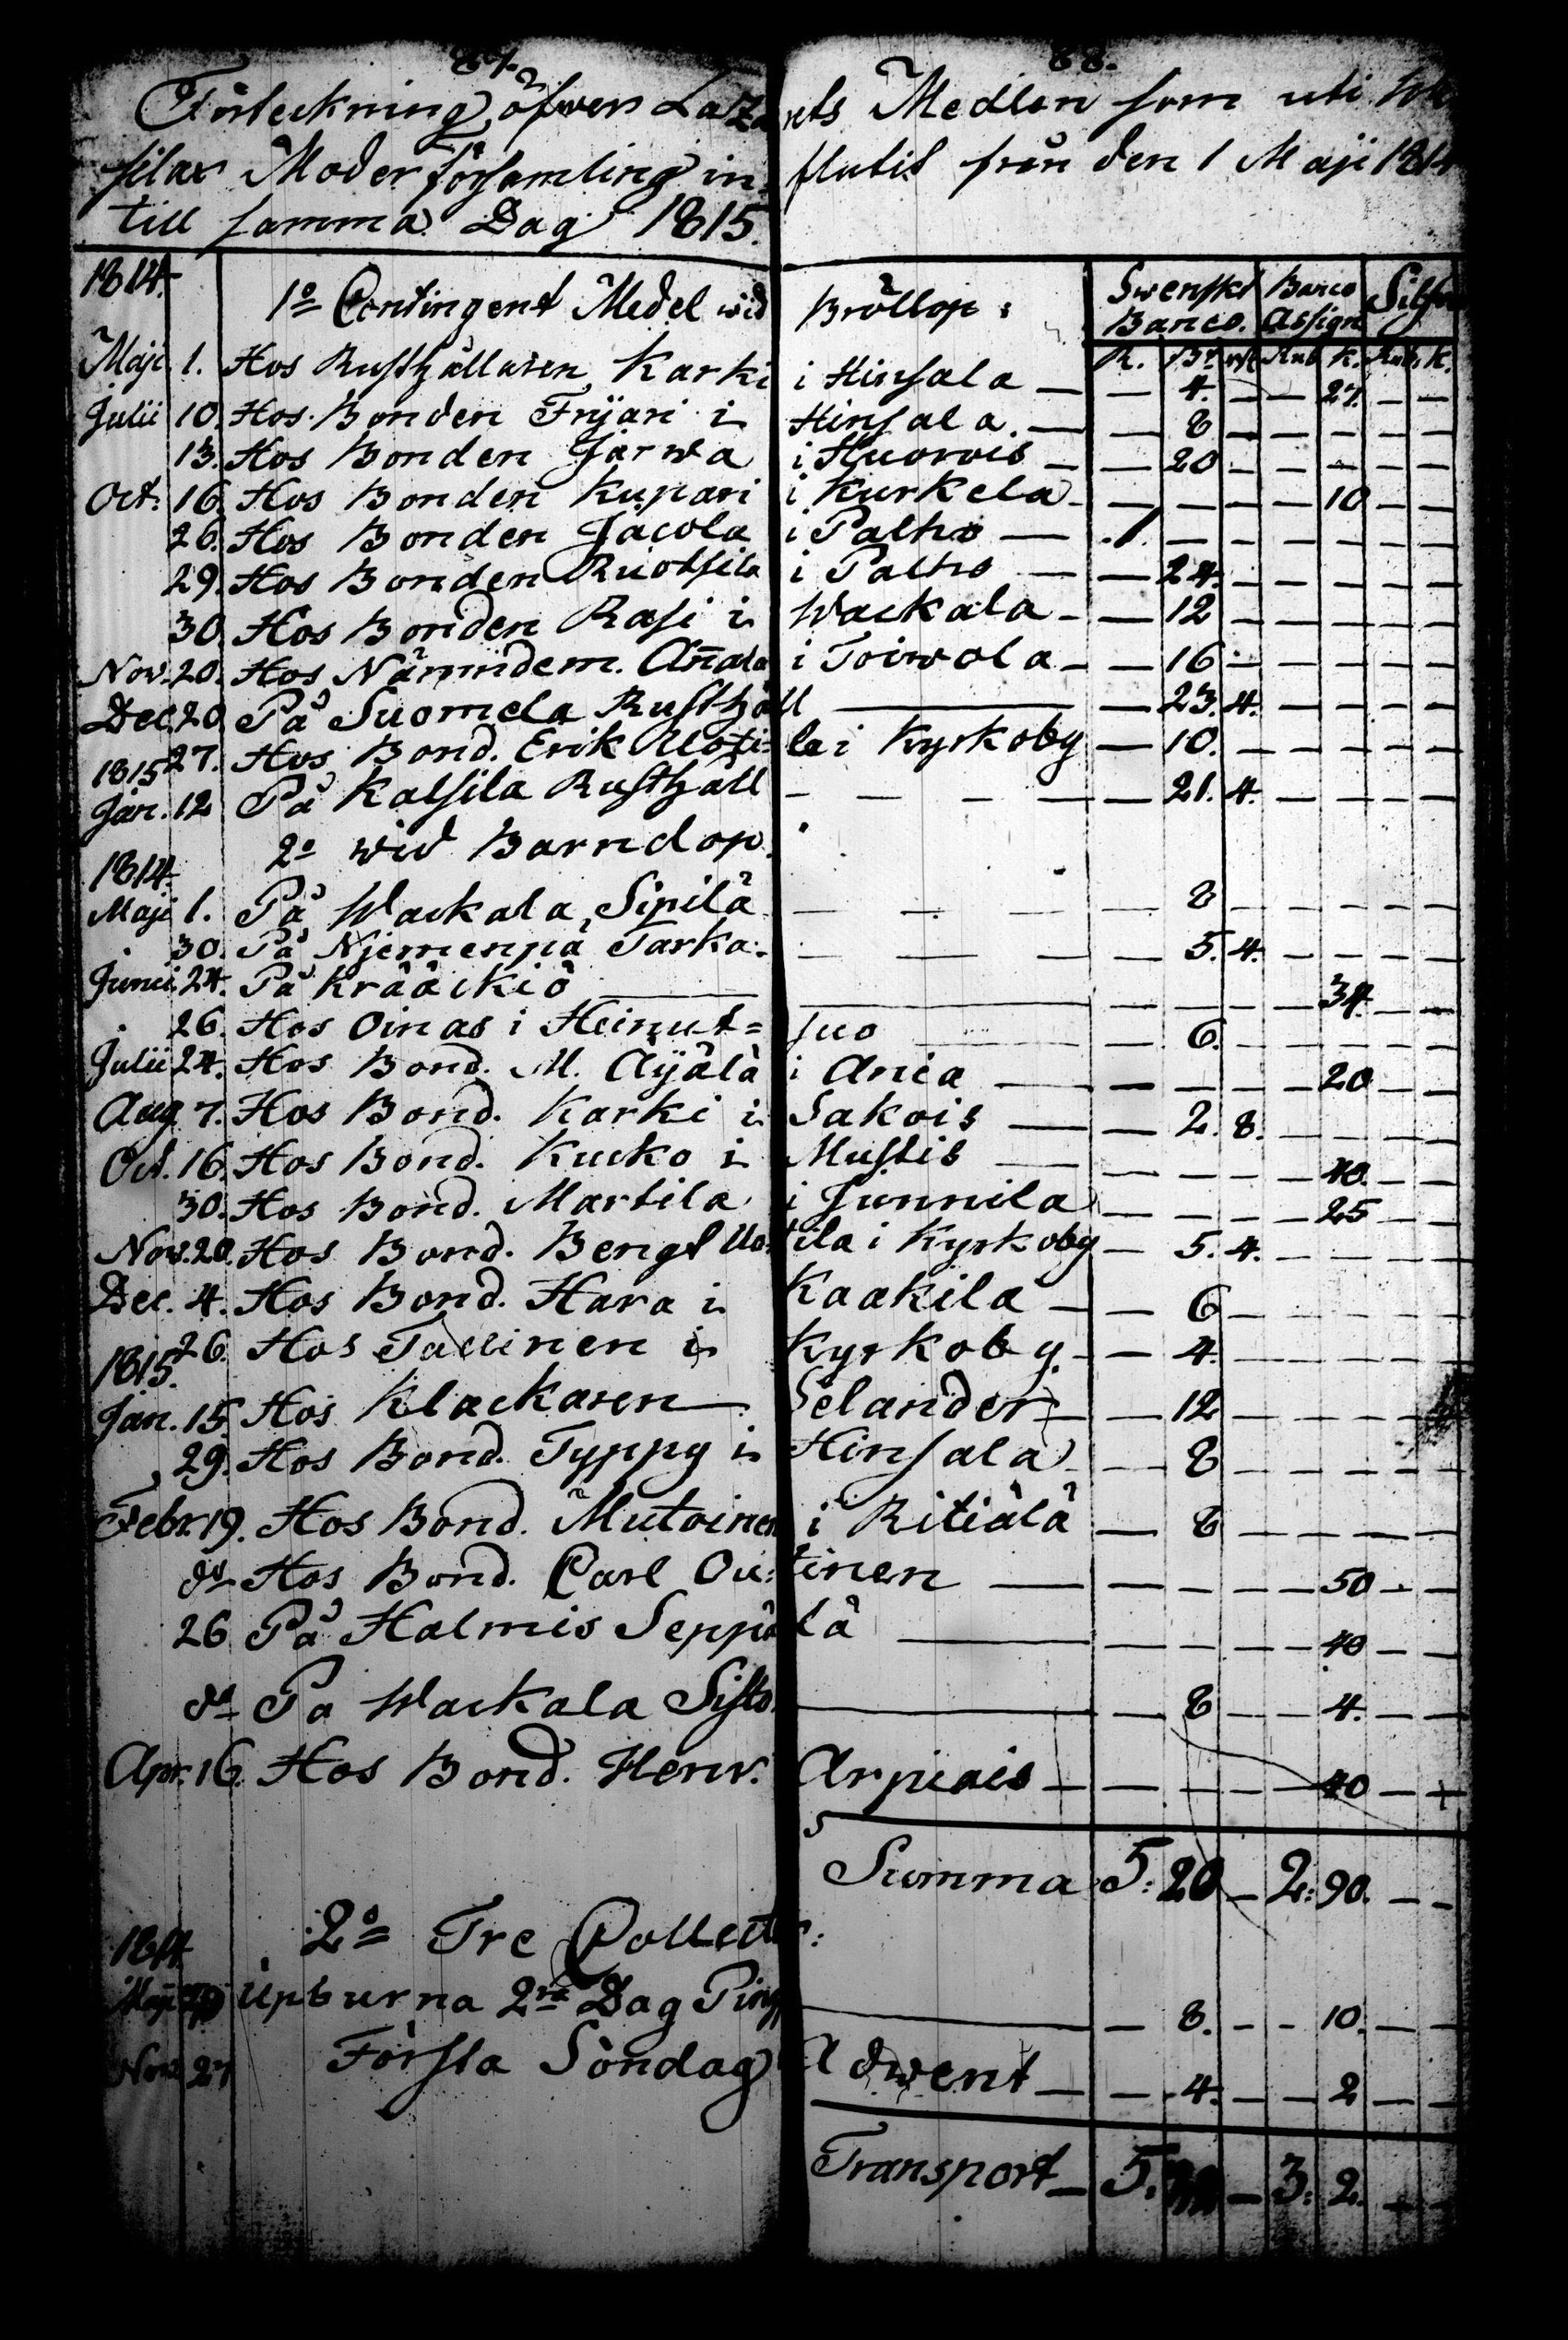 87. 88.
Förteckning öfwer Lazarets Medlen som uti
silax Moderförsamling influtit från den 1 Maji 1814
till samma Dag 1815.
1814. 1o Contingent Medel wid Bröllop: Swenskt Banco. Banco Assign Silfwer
R. Bo rst Rub K. Rub. K.
Maji 1. Hos Rusthållaren Karki i Hinsala — — 4. — — 27. — —
Julii 10. Hos Bonden Frijari i Hinsala. — — 8 — — — — —
13. Hos Bonden Jarwa i Huorois — — 20 — — — — —
Oct. 16. Hos Bonden Kupari i Kurkela — — — — — 10 — —
26. Hos Bonden Jacola i Palho — 1 — — — — — —
29. Hos Bonden Ruotsila i Palho — — 24. — — — — —
30 Hos Bonden Rasi i Wackala — — 12 — — — — —
Nov. 20. Hos Nämndem. Añala i Toiwola — — 16 — — — — —
Dec. 20 På Suomela Rusthåll — — 23. 4. — — — —
27. Hos Bond. Erik Uotila i Kyrkoby — 10. — — — — —
1815
Jan. 12 På Kalsila Rusthåll — — — — — 21. 4. — — — —
2o wid Barndop.
1814.
Maji 1. På Wackala Sipilä — — — — 8 — — — — —
30. På Njemenpä Tarka. — — — — 5. 4. — — — —
Junii 24. På Krääckiö — — — — — — 34. — —
26. Hos Oinas i Heinut=suo — — 6. — — — — —
Julii 24. Hos Bond. M. Äijälä i Ania — — — — — 20 — —
Aug. 7. Hos Bond. Karki i Sakois — — 2. 8. — — — —
Oct. 16. Hos Bond. Kucko i Mustis — — — — — 40. — —
30. Hos Bond. Martila i Junnila — — — — 25 — —
Nov. 20. Hos Bond. Bengt Uotila i Kyrkoby — 5. 4. — — — —
Dec. 4. Hos Bond. Hara i Kaakila — — 6 — — — — —
26. Hos Tallinen i Kyrkoby. — — 4. — — — — —
1815.
Jan. 15. Hos Klackaren Selander — — 12 — — — — —
29. Hos Bond. Typpy i Hinsala — — 8 — — — — —
Febr. 19. Hos Bond. Mutoinen i Ritiälä — 8 — — — — —
do Hos Bond. Carl Ou:tinen — — — — — 50 — —
26 På Halmis Seppälä — — — — — 40 — —
do På Wackala Sisto — — 8 — — 4. — —
Apr. 16. Hos Bond. Henr. Arpiais — — — — — 40 — —
Summa 5: 20 — 2: 90. — —
2o Tre Collecter:
1814
Maji Upburna 2ra Dag Pingst — — 8. — — 10. — —
Nov. 27 Första Söndag Adwent — — 4. — — 2 — —
Transport — 5. — 3: 2. — —